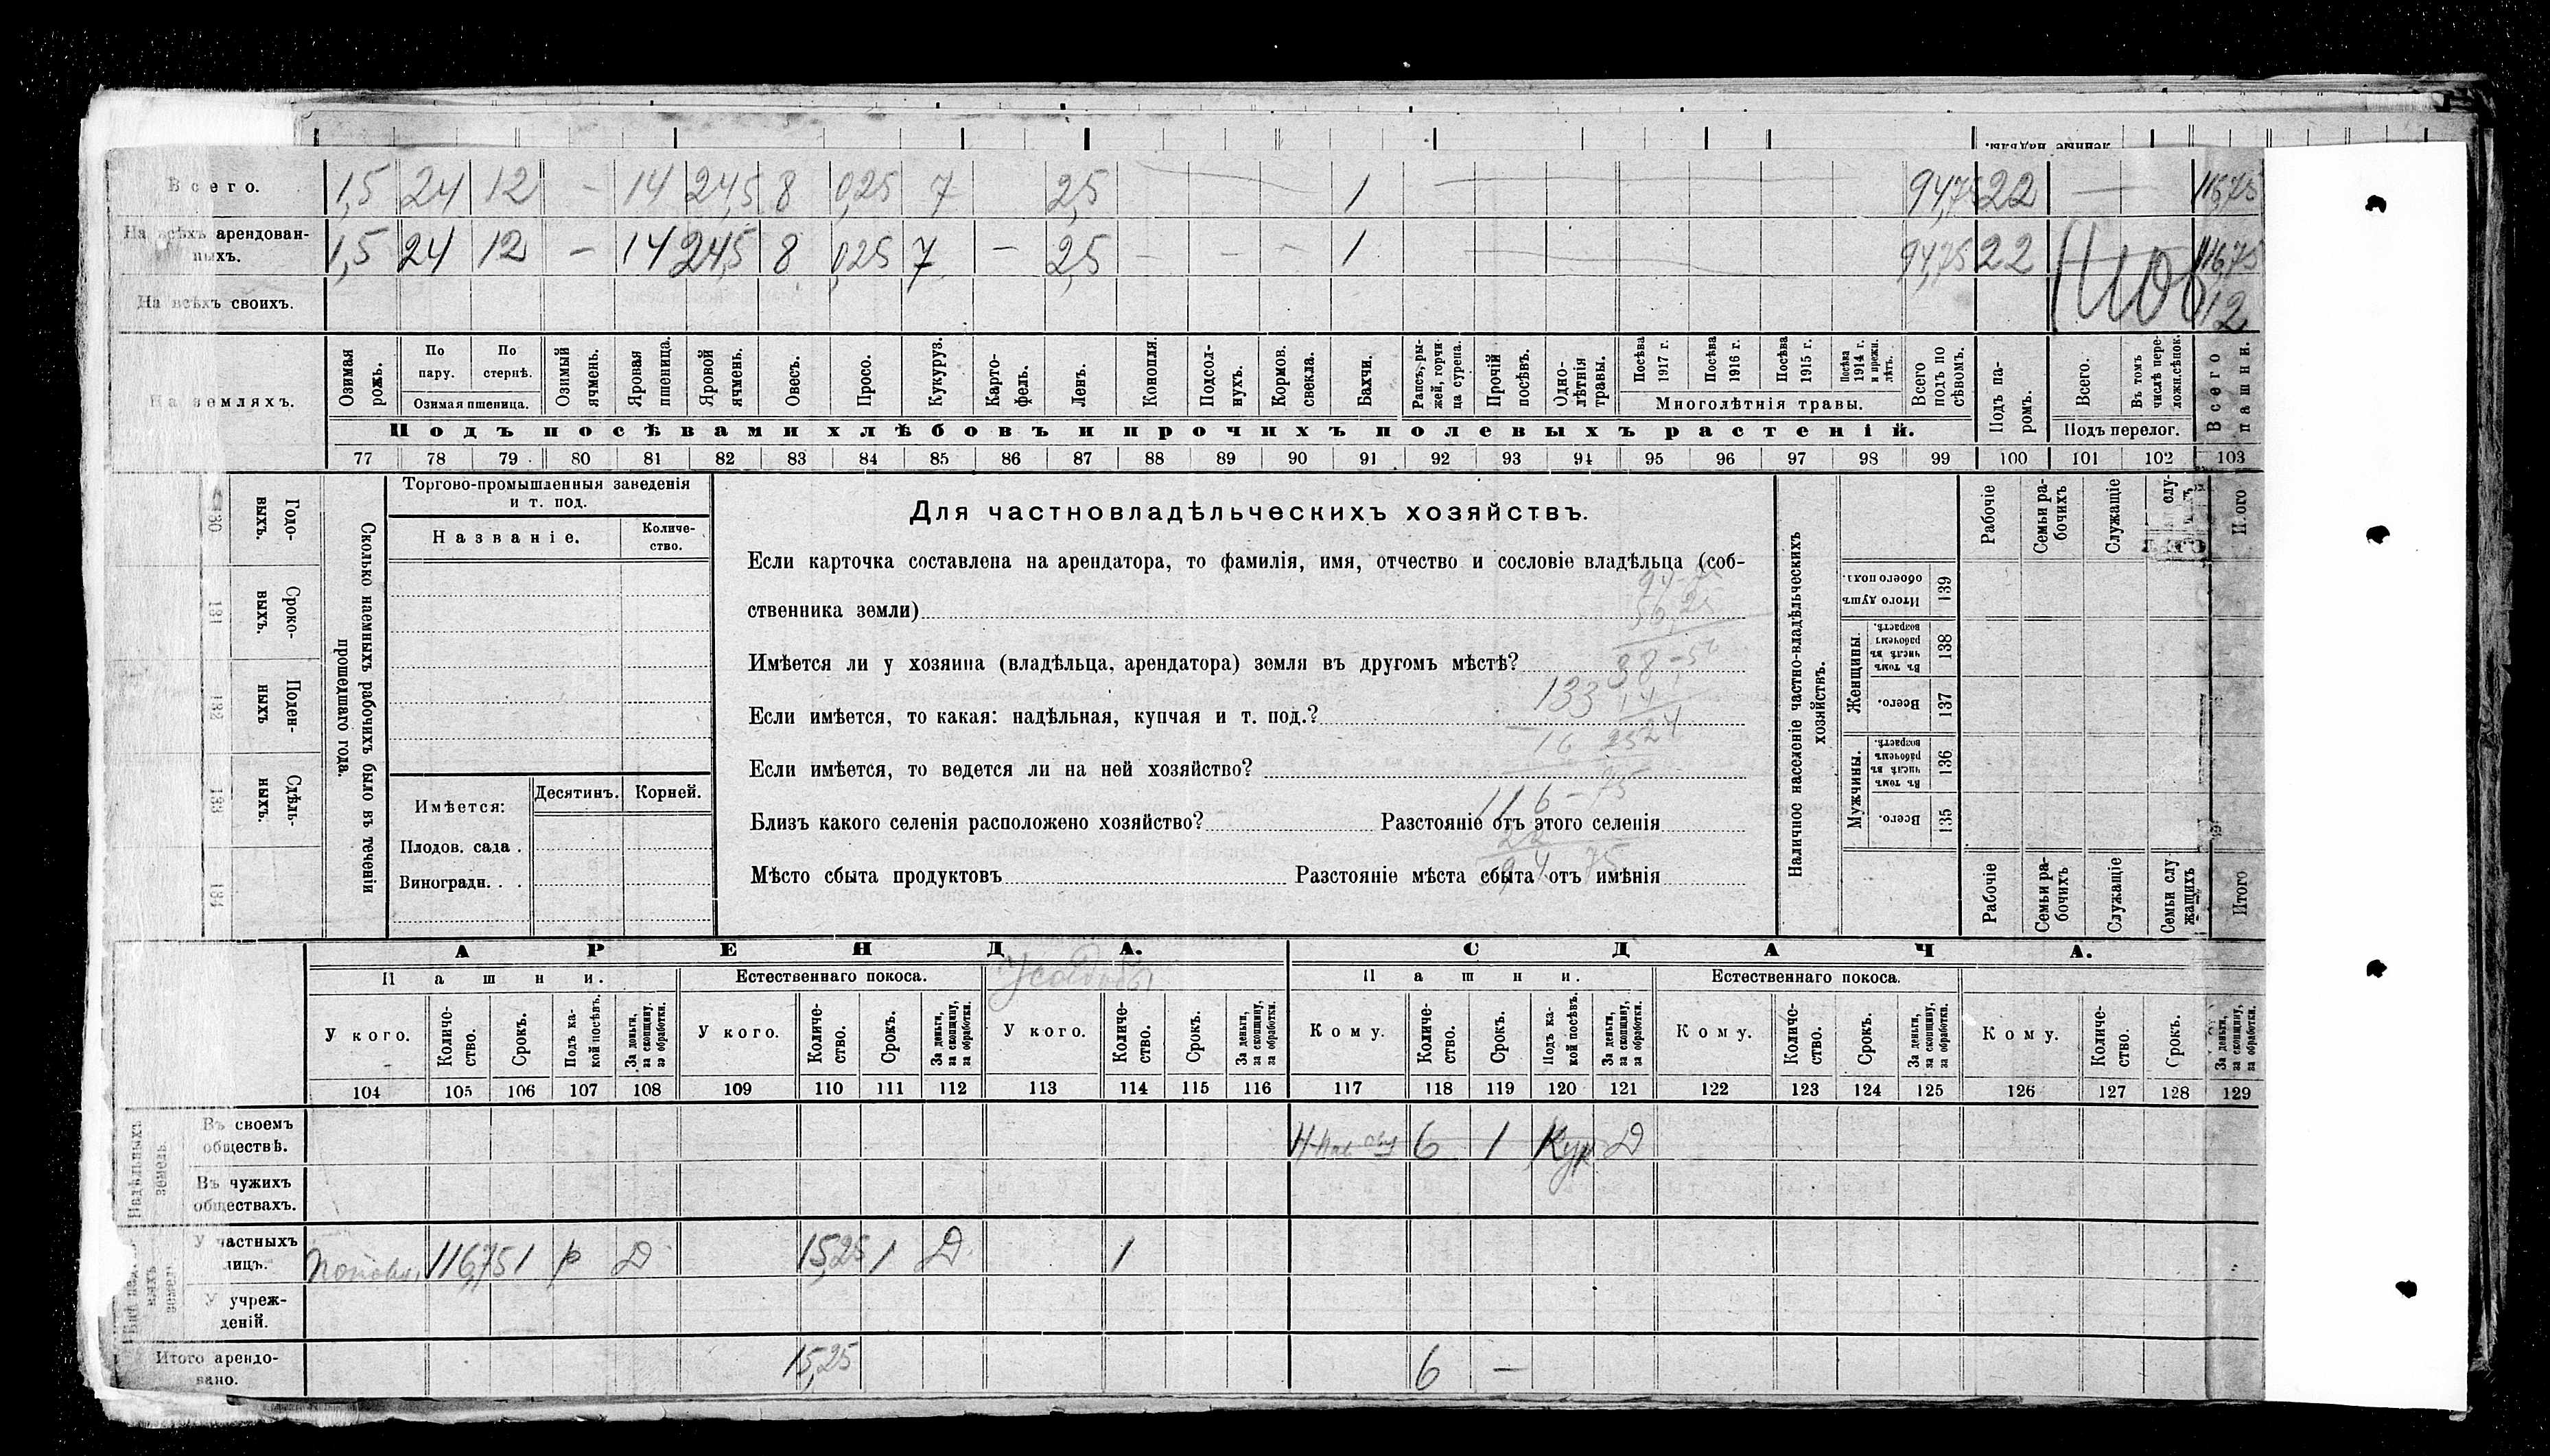 Всего. 1,5 24 12 — 14 24,5 8 0,25 7 2,5 1 94,75 22 — 116,75
На всѣхъ арендован-
ныхъ. 1,5 24 12 — 14 24,5 8 0,25 7 — 2,5 — — — 1 — 94,75 22 — 116,75
На всѣхъ своихъ. 12
На земляхъ.
Озимая рожь.
По пару.
По стернѣ.
Озимая пшеница.
Озимый ячмень.
Яровая пшеница.
Яровой ячмень.
Овесъ.
Просо.
Кукуруз.
Карто-
фель.
Ленъ.
Конопля.
Подсол-
нухъ.
Кормов.
свекла.
Бахчи.
Рапсъ, ры-
жей, горчи-
ца сурепа.
Прочій
посѣвъ.
Одно-
лѣтнія
травы.
Посѣва
1917 г.
Посѣва
1916 г.
Посѣва
1915 г.
Посѣва
1914 г.
и прежн.
лѣтъ.
Многолѣтнія травы.
Всего
подъ по
сѣвомъ.
Подъ па-
ромъ.
Всего.
Въ томъ
числѣ пере-
ложн.сѣнок.
Подъ перелог.
Всего
пашни.
Подъ посѣвами хлѣбовъ и прочихъ полевыхъ растеній.
77 78 79 80 81 82 83 84 85 86 87 88 89 90 91 92 93 94 95 96 97 98 99 100 101 102 103
Годо-
выхъ.
130
Сроко-
выхъ.
131
Поден-
ныхъ
132
Сдѣль-
ныхъ.
133
134
Сколько наемныхъ рабочихъ было въ теченіи
прошедшаго года.
Торгово-промышленныя заведенія
и т. под.
Названіе.
Количе-
ство.
Имѣется:
Десятинъ.
Корней.
Плодов. сада .
Виноградн. . .
Для частновладѣльческихъ хозяйствъ.
Если карточка составлена на арендатора, то фамилія, имя, отчество и сословіе владѣльца (соб-
ственника земли)
Имѣется ли у хозяина (владѣльца, арендатора) земля въ другомъ мѣстѣ?
Если имѣется, то какая: надѣльная, купчая и т. под.?
Если имѣется, то ведется ли на ней хозяйство?
Близъ какого селенія расположено хозяйство? Разстояніе отъ этого селенія
Мѣсто сбыта продуктовъ Разстояніе мѣста сбыта отъ имѣнія
94-75
56,25
38-50
133
116-75
22
94 75
Наличное населеніе частно-владѣльческихъ
хозяйствъ.
Рабочіе
Семьи ра-
бочихъ
Служащіе
Итого душъ
обоего пола
139
Женщины.
Въ томъ
числѣ въ
рабочемъ
возрастѣ.
138
Всего.
137
Мужчины.
Въ томъ
числѣ въ
рабочемъ
возрастѣ.
136
Всего.
135
Рабочіе
Семьи ра-
бочихъ
Служащіе
Семьи слу
жащихъ
Итого
АРЕНДА. СДАЧА.
Пашни. Естественнаго покоса. Усадьбы Пашни. Естественнаго покоса.
У кого.
Количе-
ство.
Срокъ.
Подъ ка-
кой посѣвъ.
За деньги,
за скопщину,
за обработки.
У кого.
Количе-
ство.
Срокъ.
За деньги,
за скопщину,
за обработки.
У кого.
Количе-
ство.
Срокъ.
За деньги,
за скопщину,
за обработки.
Кому.
Количе-
ство.
Срокъ.
Подъ ка-
кой посѣвъ.
За деньги,
за скопщину,
за обработки.
Кому.
Количе-
ство.
Срокъ.
За деньги,
за скопщину,
за обработки.
Кому.
Количе-
ство.
Срокъ.
За деньги,
за скопщину,
за обработки.
104 105 106 107 108 109 110 111 112 113 114 115 116 117 118 119 120 121 122 123 124 125 126 127 128 129
Надѣльныхъ
земель.
Въ своемъ
обществѣ. 6 1 Кук Д
Въ чужихъ
обществахъ.
У частныхъ
лицъ. 116,75 1 р Д 15,25 1 Д 1
У учреж-
деній.
Итого арендо-
вано. 15,25 6 —